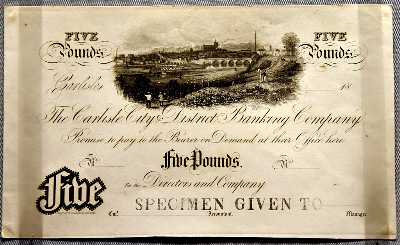 FIVE Pounds FIVE Pounds
Carlisle 18
The Carlisle City & District Banking Company
Promise to pay to the Bearer on Demand at their Office here
No Five Pounds. No
for the Directors and Company
Five
SPECIMEN GIVEN TO
Ent. Accountant. Manager